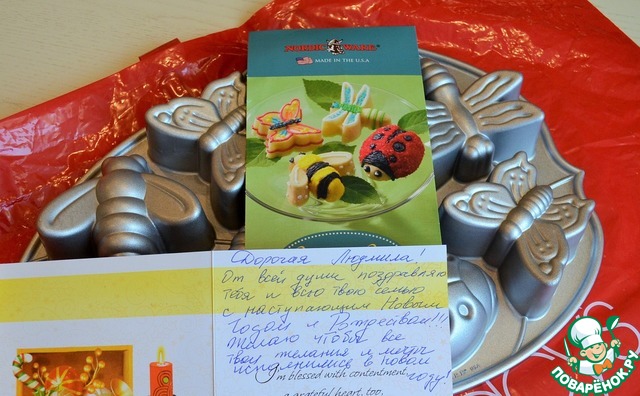 NORDIC WARE
MADE IN THE U.S.A
Дорогая Людмила!
От всей души поздравляю
тебя и всю твою семью
с наступающим Новым
Годом и Рождеством!!!
Желаю чтобы все
твои желания и мечты
исполнились в новом
году!
m blessed with contentment
a grateful heart, too,
ПОВАРЁНОК.РУ